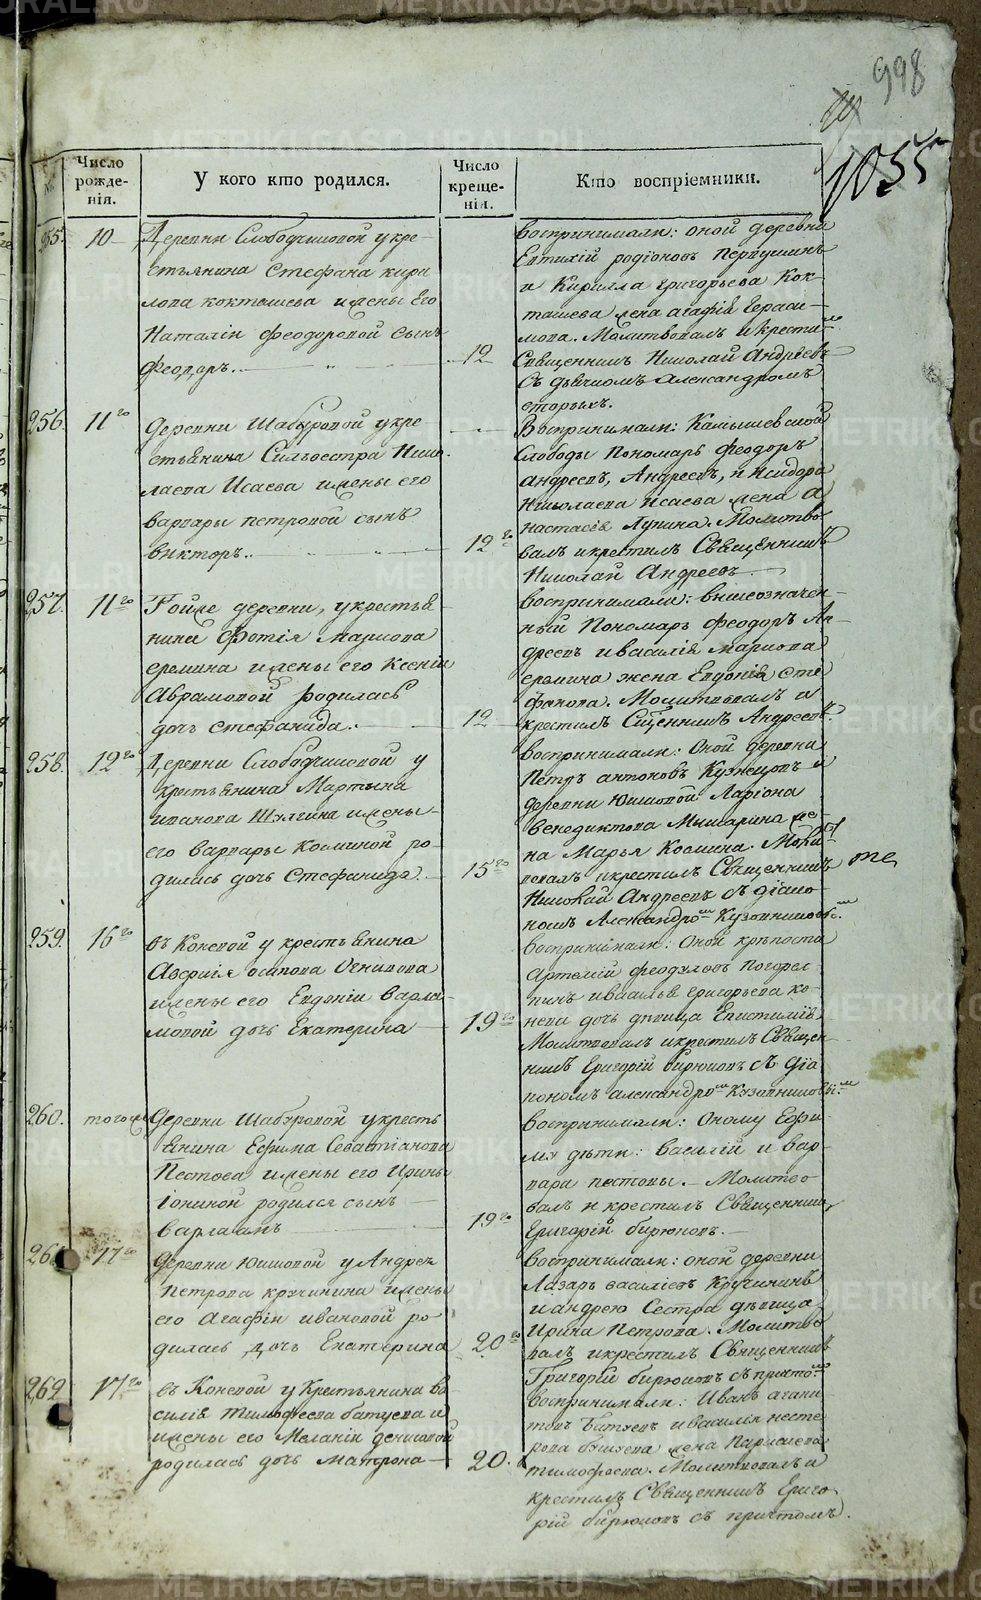 998
1055
№
Число рожде-нія.
У кого кто родился.
Число креще-нія.
Кто воспріемники.
255.
10
Деревни Слободчиковой у кре-
стьянина Стефана кири
лова коктышева и жены Его
Наталіи феодоровой сынъ
Феодоръ.
12
Воспринимали: оной деревни
Евтихій родіоновъ Первушинъ
и Кирилла григорьева Кок-
ташева жена агафія Гераси-
мова. Молитвовалъ и крести
Священникъ Николай Андреевъ
съ дьячкомъ александромъ
256.
11го
деревни Шабуровой у кре
стьянина Сильвестра Нико
лаева Исаева и жены его
варвары петровой сынъ
викторъ.
12го
Воспринимали: Камышевской
Слободы Пономарь Феодоръ
андреевъ, Андреевъ, и Исидора
Николаева исаева жена а
настасія Лупина. Молитво
валъ и крестилъ Священникъ
Николай Андреевъ
257.
11го
Тойже деревни, у крестья
нина Фотія Маркова
еремина и жены его Ксеніи
Аврамовой родилась
дочь стефанида.
12
Воспринимали: вышеозначен-
ный Пономарь феодоръ Ан-
дреевъ и василія маркова
еремина жена Евдокія сте
фанова. Молитвовалъ и
крестилъ Священникъ Андреевъ.
258.
12го
Деревни Слободчиковой у
крестьянина Мартына
иванова Шулгина и жены
его варвары Косминой ро-
дилась дочь Стефанида
15го
Воспринимали: Оной деревни
Петръ антоновъ Кузнецовъ и
деревни Юшковой Ларіона
венедиктова Мышарина же-
на Марья Космина. Молит
вовалъ и крестилъ Священникъ
Николай Андреевъ съ діако-
номъ Александромъ Кузовниковы:мъ
259.
16го
въ Коневой у крестьянина
осипова Огнивова
и жены его Евдокіи варла-
мовой дочь Екатерина
19го
Воспринимали: Оной крѣпости
Артемій феодуловъ Погорел-
кинъ и василья григорьева ко-
нева дочь дѣвица Епистимія
Молитвовалъ и крестилъ Священ-
никъ Григорій бирюковъ съ діа
кономъ александромъ Кузовниковы:мъ
260.
того ж
Деревни Шабуровой у кресть
янина Ефима Севастіанова
Пестова и жены его Ирины
іониной родился сынъ
варлаамъ
19го
Воспринимали: Оному Ефи-
му дѣти: василій и вар-
вара пестовы. – Молитво
валъ и крестилъ Священникъ
Григорій бирюковъ.
261
17го
Деревни Юшковой у Андрея
Петрова кручинина и жены
его агафіи ивановой ро-
дилась дочь Екатерина
20го
Воспринимали: оной деревни
Лазарь васильевъ Кручининъ
и андрею Сестра дѣвица
Ирина Петрова. Молитво
валъ и крестилъ Священникъ
Григорій бирюковъ съ причто:мъ
262
17го
въ Коневой у Крестьянина ва
силія Тимофеева батуева и
и жены его Меланіи денисовой
родилась дочь матрона
20.
Воспринимали: Иванъ агапи
товъ Батуевъ и василія несте
рова жена Параскева
тимофеева. Молитвовалъ и
крестилъ Священникъ Григо
рій бирюковъ съ причтомъ.